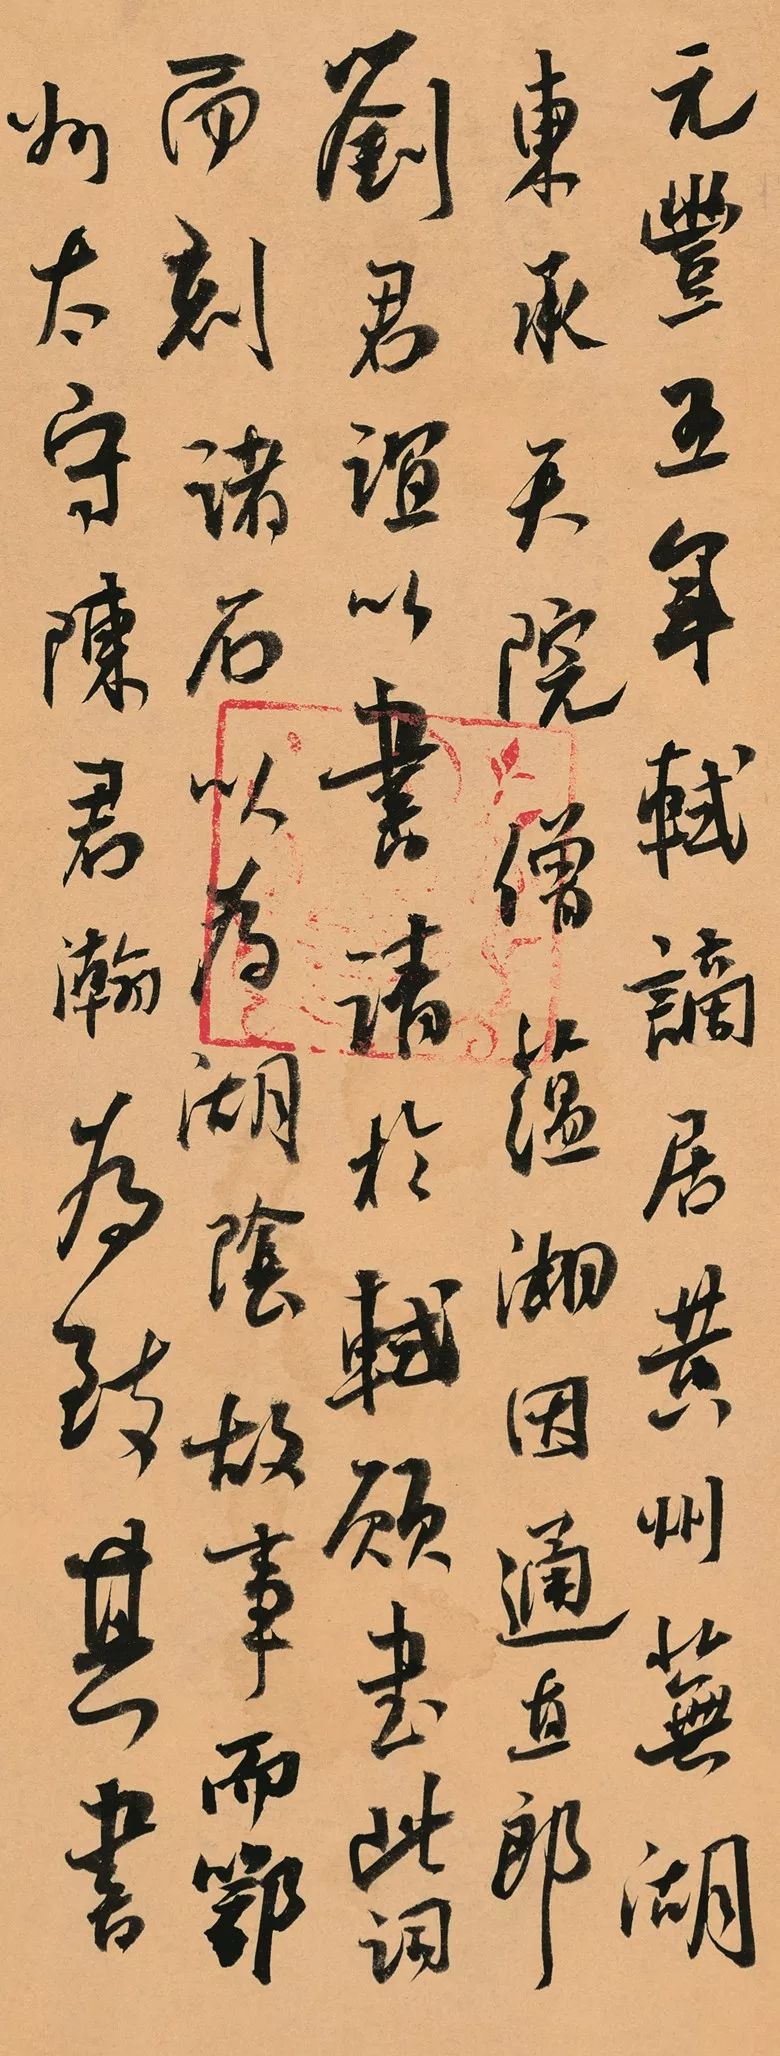 元豐五年軾謫居黄州蕪湖
東承天院僧藴湘因通直郎
劉君誼以書請於軾願書此詞
而刻諸石以為湖陰故事而鄂
州太守陳君瀚為致其書